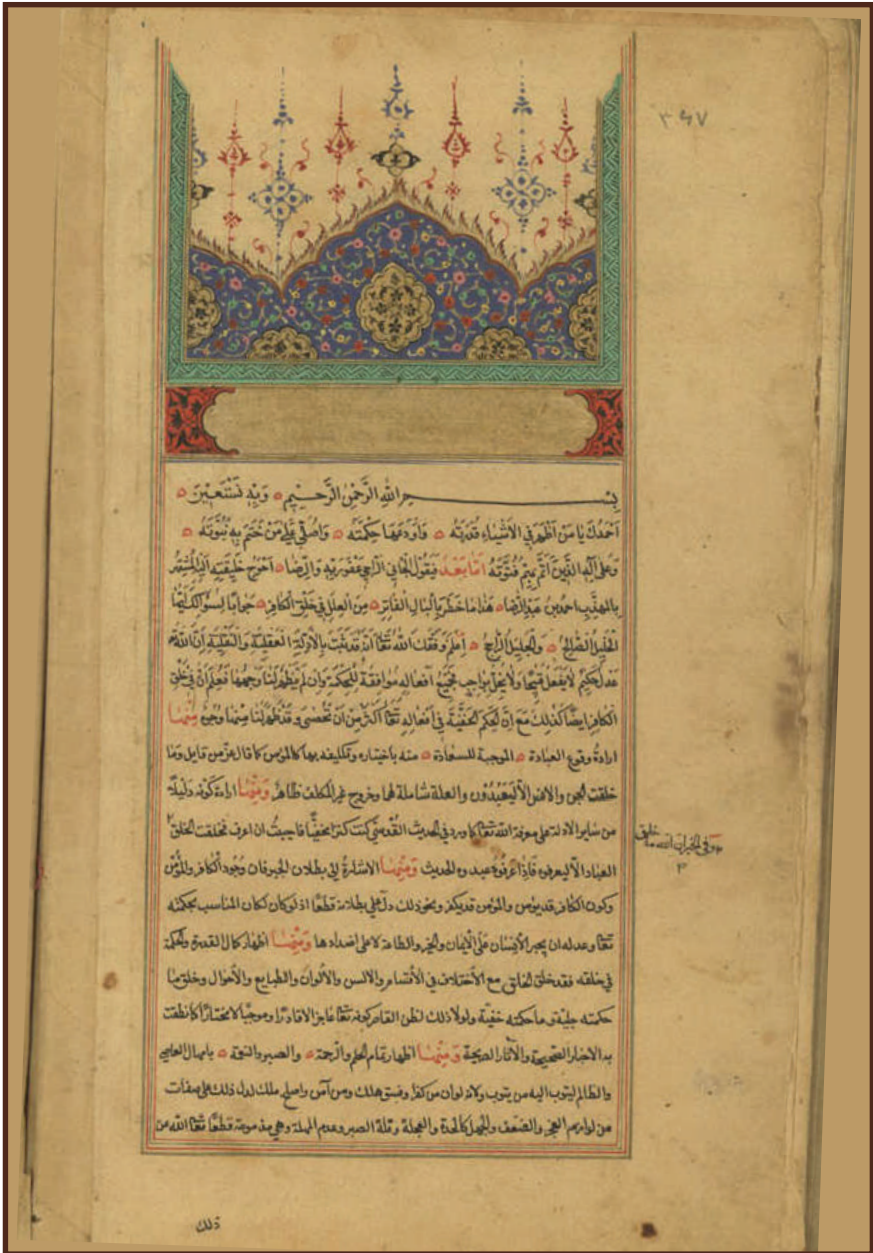 ٣٤٧
بسم الله الرَّحمن الرَّحيم وَبِهِ نَسْتَعِينُ
احمدك يا من اظهر في الاشياء قدرته واودعها حكمته واصلي على من ختم به نبوته
وعلى آله الذين اتم بهم فتوته امّا بعد فيقول الجاني الراجي عفو ربه والرضا احوج خليقته اليه المستقر
بالمهذب احمد بن عبد الرضا هذا ما خطر بالبال الفاتر من العلل في خلق الكافر جوابا لسؤالك ايها
الخليل الصالح والجليل الراجح اعلم وفقك الله تعا انه قد ثبت بالادلة العقلية والنقلية ان الله تعا
عدل حكيم لا يفعل قبيحا ولا يخل بواجب فجميع افعاله موافقة للحكمة وان لم يظهر لنا وجهها فعلم ان في خلق
الكافر ايضا كذلك مع ان الحكم الخفية في افعاله تعا اكثر من ان تحصى وقد ظهر لنا منها وجوه منها
ارادة وقوع العبادة الموجبة للسعادة منه باختياره وتكليفه بها كالمؤمن كما قال عز من قايل وما
خلقت الجن والانس الا ليعبدون والعلة شاملة لهما وخروج غير المكلف ظاهر ومنها ارادة كونه دليلا
من ساير الادلة على معرفة الله تعا كما ورد في الحديث القدسي كنت كنزا مخفيا فاحببت ان اعرف فخلقت الخلق
العباد الا ليعرفوه فاذا عرفوه عبدوه الحديث ومنها الاشارة الى بطلان الجبر فان وجود الكافر والمؤمن
وكون الكافر قد يؤمن والمؤمن قد يكفر ونحو ذلك دل على بطلانه قطعا اذ لو كان لكان المناسب بحكمته
تعا وعدله ان يجبر الانسان على الايمان والخير والطاعة لا على اضدادها ومنها اظهار كمال القدرة والحكمة
في خلقه فقد خلق الخلق مع الاختلاف في الاقسام والالسن والالوان والطبايع والاحوال وخلق ما
حكمته جلية وما حكمته خفية ولولا ذلك لظن القاصر كونه تعا عاجزا لا قادرا وموجبا لا مختارا كما نطقت
به الاخبار الصحيحة والآثار الصريحة ومنها اظهار تمام الحلم والرحمة والصبر والتوبة بامهال العاصي
والظالم ليتوب اليه من يتوب ولانه لو ان من كفر وفسق هلك ومن آمن واصلح ملك لدل ذلك على صفات
من لوازم العجز والضعف والجهل كالحدة والعجلة وقلة الصبر وعدم المهلة وهي مذمومة قطعا تعا الله عن
وفي الخبر ان الله ما خلق
ذلك